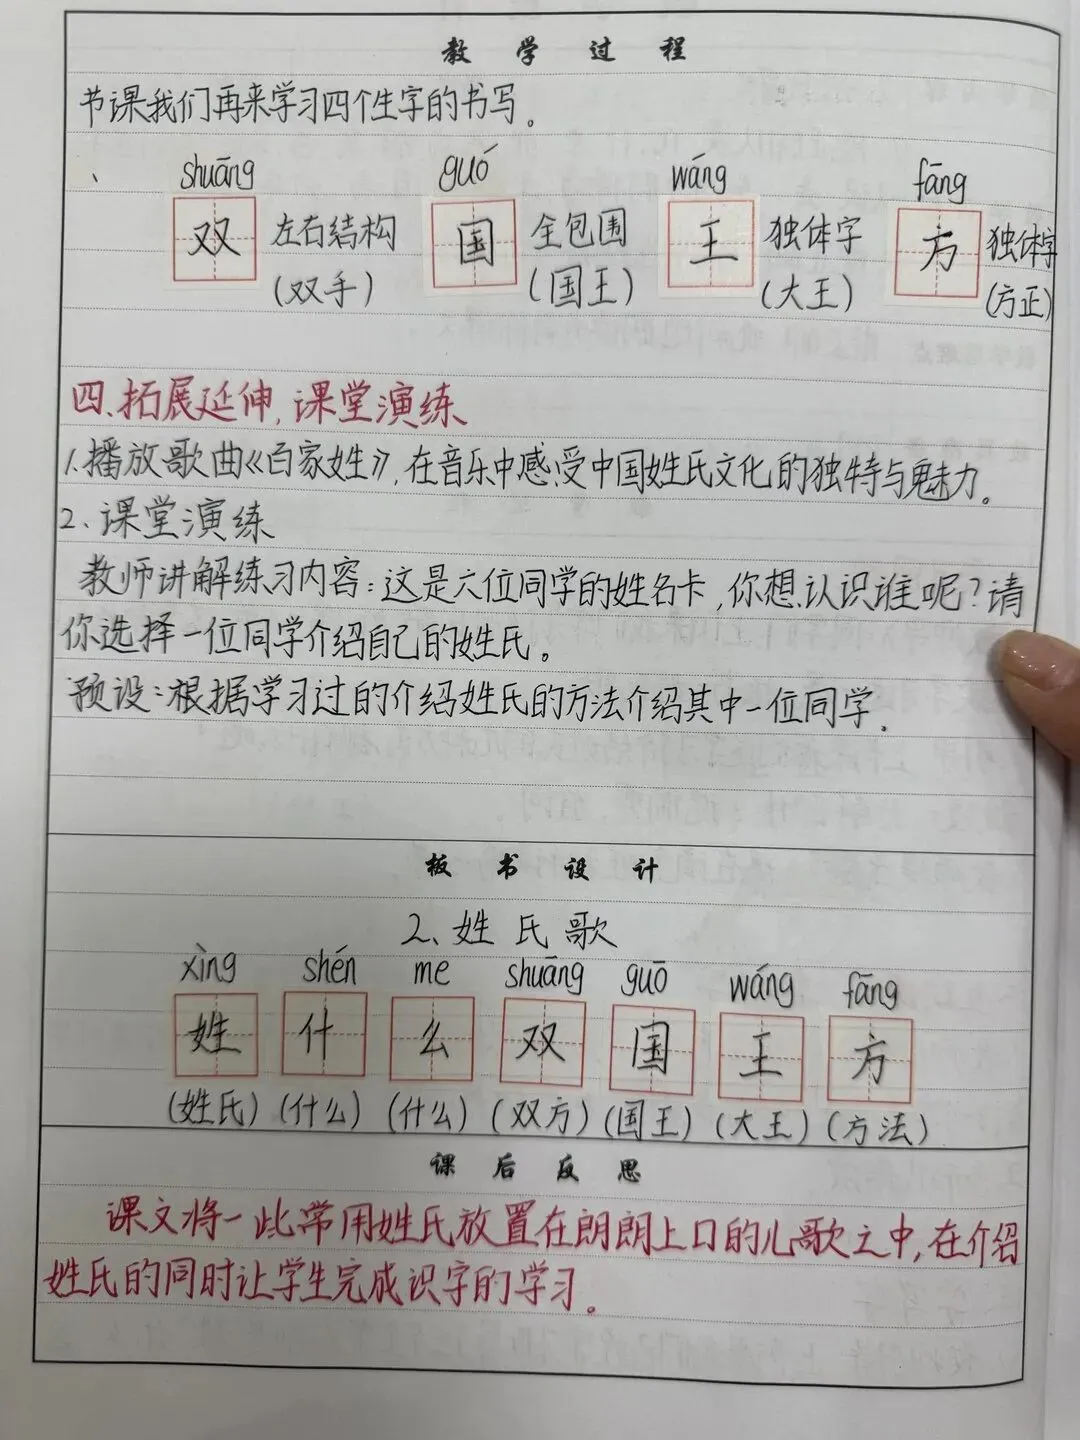 教学过程
节课我们再来学习四个生字的书写。
shuāng guó wáng fāng
双 左右结构 国 全包围 王 独体字 方 独体字
(双手) (国王) (大王) (方正)
四、拓展延伸,课堂演练
1.播放歌曲《百家姓》,在音乐中感受中国姓氏文化的独特与魅力。
2、课堂演练
教师讲解练习内容:这是六位同学的姓名卡,你想认识谁呢?请
你选择一位同学介绍自己的姓氏。
预设:根据学习过的介绍姓氏的方法介绍其中一位同学.
板书设计
2、姓氏歌
xìng shén me shuāng guō wáng fāng
姓 什 么 双 国 王 方
(姓氏) (什么) (什么) (双方) (国王) (大王) (方法)
课后反思
课文将一此常用姓氏放置在朗朗上口的儿歌之中,在介绍
姓氏的同时让学生完成识字的学习。